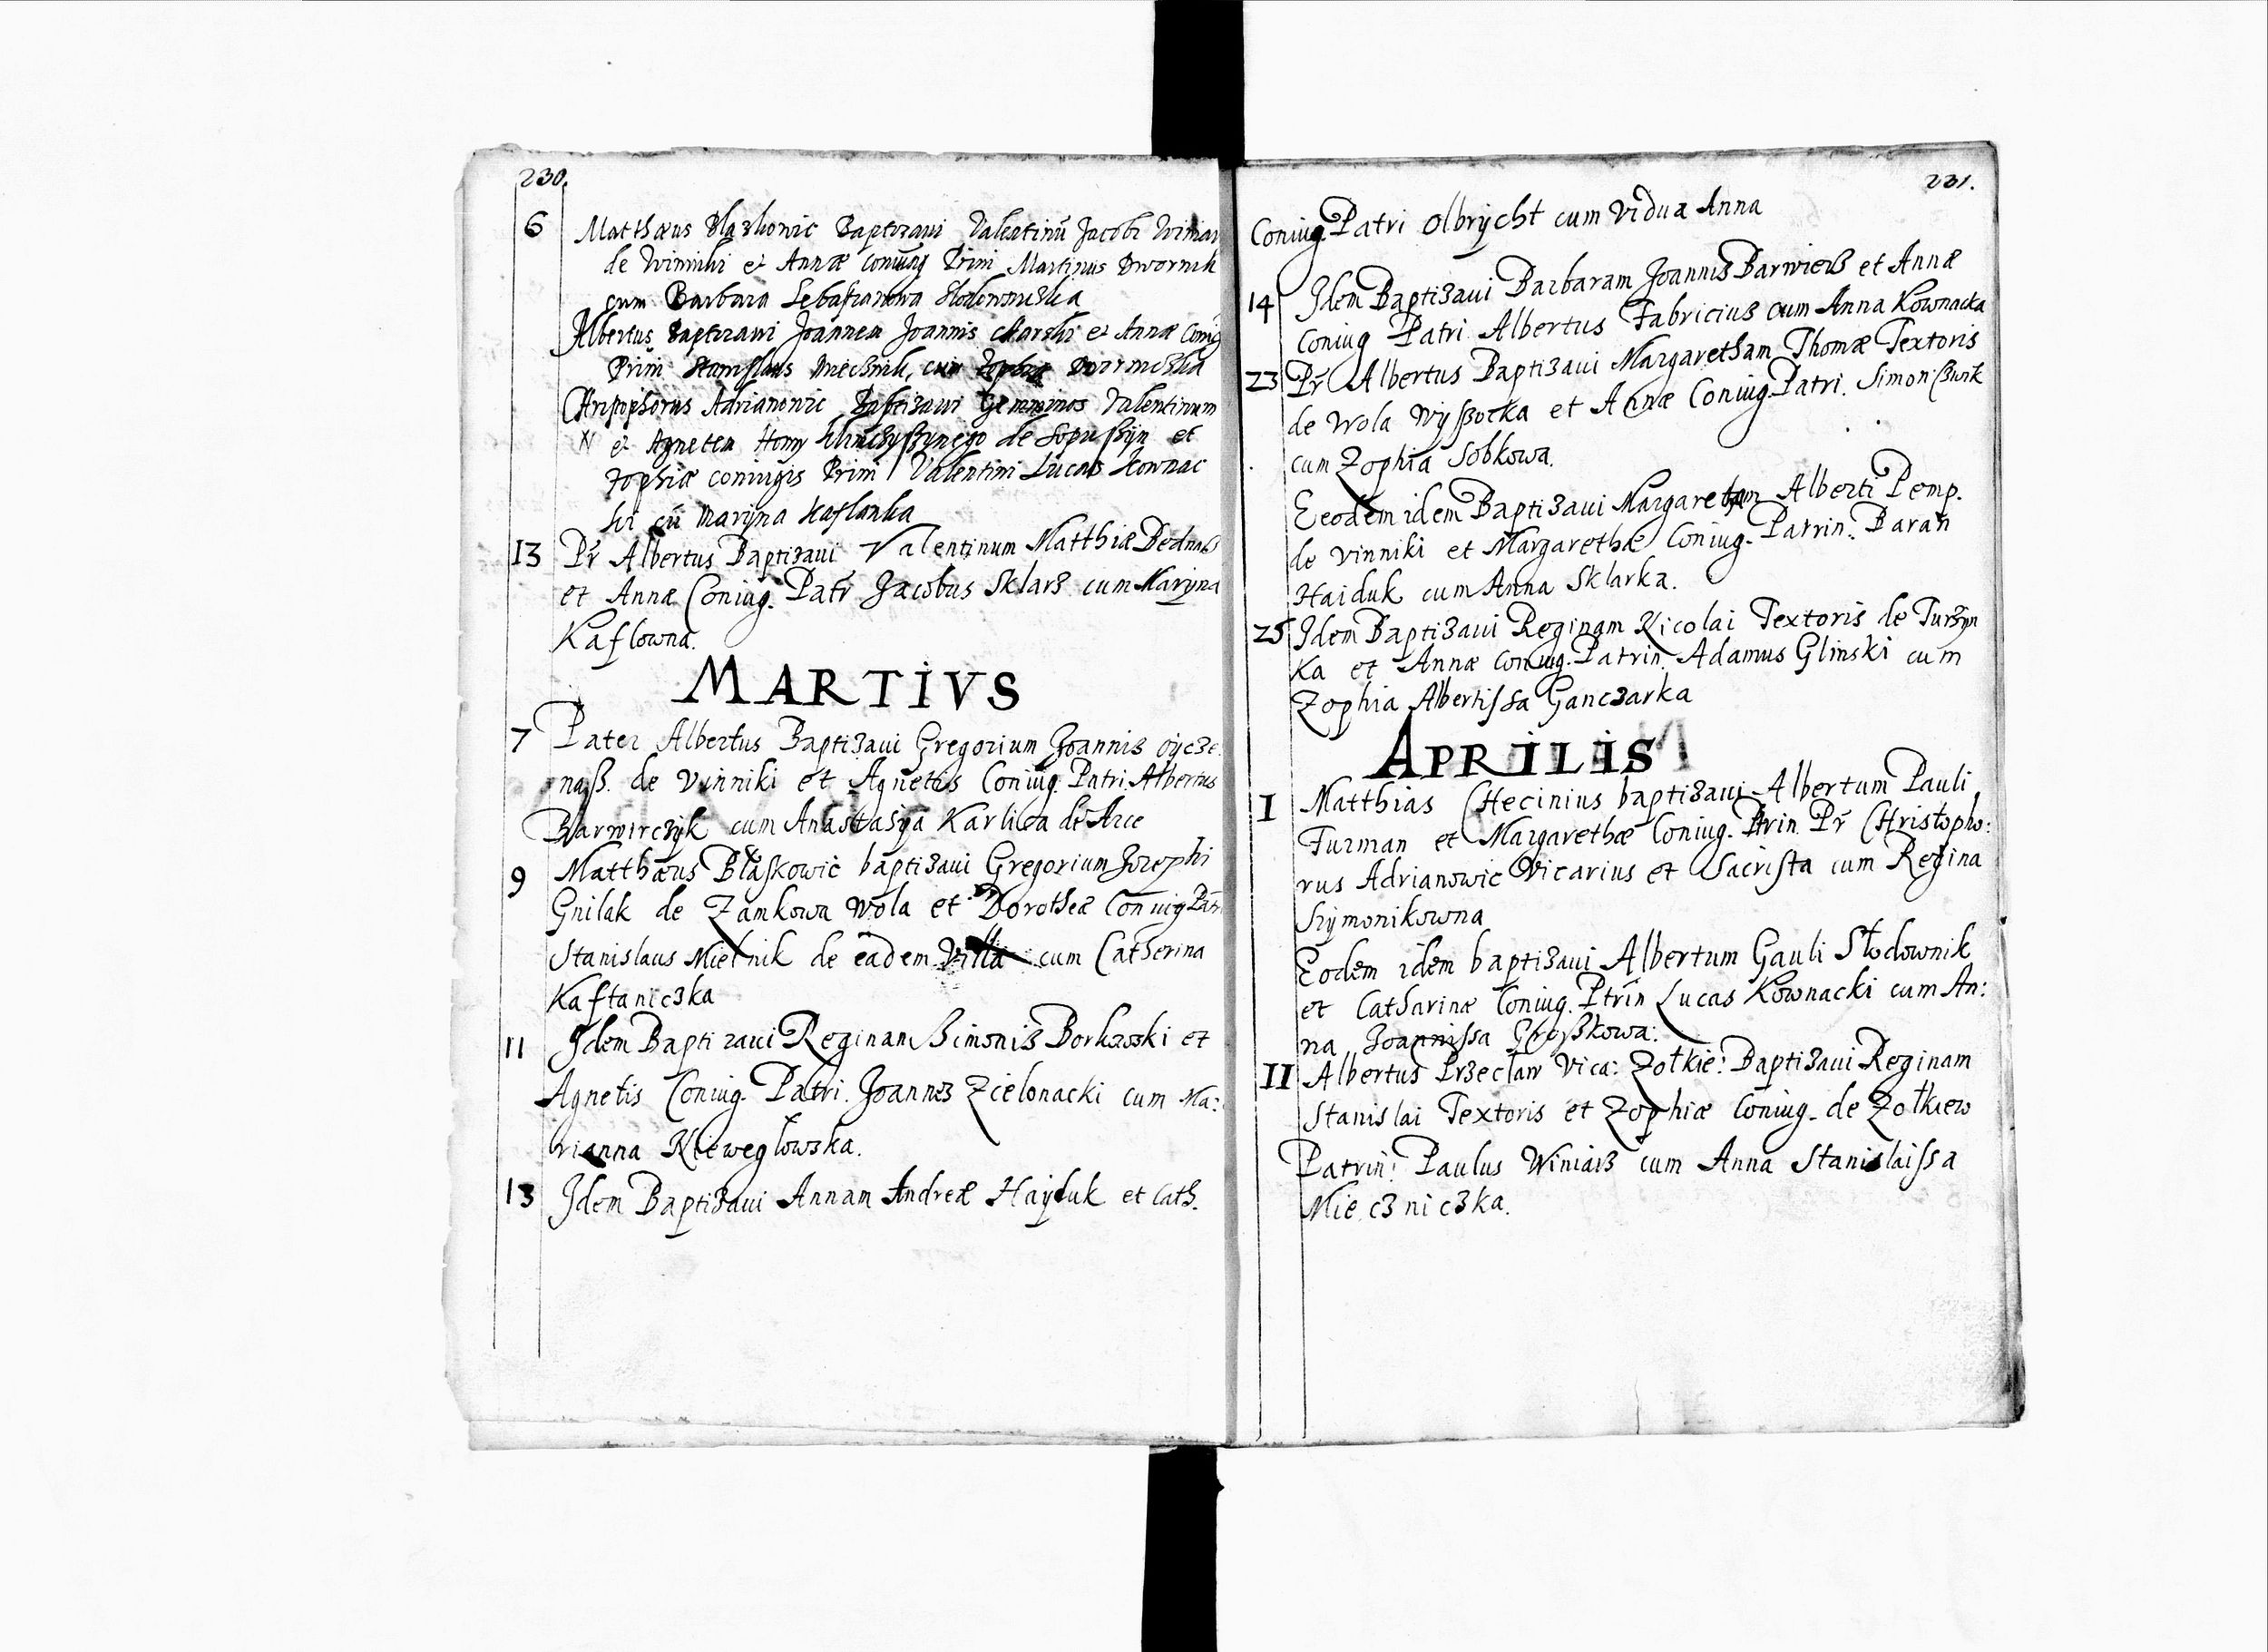 230.
6 Matthæus Blaskowic Baptizaui Valentinū Jacobi Winiar
de Winniki et Annæ coniung Prini Martinus Dwornik
cum Barbara Sebastianowa Slodowniczka
Albertus Baptizaui Joannem Joannis et Annæ Conig
Prini Stanislaus Miecznik, cum Zophia Dworniczka
Christophorus Adrianowic Baptizaui Geminos Valentinum
et Agnetem de Sopuszyn et
Zophiæ coniugis Prini Valentini Lucas Kownac
ki cū Maryna Kaflanka
13 Pr Albertus Baptizaui Valentinum Matthiæ Bednaß
et Annæ Coniug. Patr Jacobus Sklarz cum Maryna
Kaflowna.
MARTIVS
7 Pater Albertus Baptizaui Gregorium Joannis oycze
naß. de Vinniki et Agnetis Coniug. Patri. Albertus
Barwirczyk cum Anastasya Karlica de Arce
9 Matthæus Błaskowic baptizaui Gregorium Jozephi
Gnilak de Zamkowa Wola et Dorotheæ Coniug Patr
Stanislaus Mielnik de eadem Villa cum Catherina
Kaftaniczka
11 Idem Baptizaui Reginam Simonis Borkowski et
Agnetis Coniug. Patri. Joannes Zielonacki cum Ma:
rianna Nieweglowska.
13 Idem Baptizaui Annam Andreæ Hayduk et Cath.
231.
Coniug. Patri Olbrycht cum Vidua Anna
14 Idem Baptizaui Barbaram Joannis Barwierß et Annæ
Coniug Patri. Albertus Fabricius cum Anna Kownacka
23 Pr Albertus Baptizaui Margaretham Thomæ Textoris
de Wola Wyßocka et Annæ Coniug. Patri. Simon
cum Zophia Sobkowa.
Eeodem idem Baptizaui Margaretam Alberti Pemp.
de Vinniki et Margarethæ Coniug. Patrin. Baran
Haiduk cum Anna Sklarka.
25 Idem Baptizaui Reginam Nicolai Textoris de Turzyn
Ka et Annæ Coniug. Patrin. Adamus Glinski cum
Zophia Albertissa Ganczarka
APRILIS
I Matthias CHecinius baptizaui Albertum Pauli
Furman et Margarethæ Coniug. Ptrin. Pr CHristopho:
rus Adrianowic Vicarius et Sacrista cum Regina
Szymonikowna
Eodem idem baptizaui Albertum Gauli Słodownik
et Catharinæ Coniug. Ptrin Lucas Kownacki cum An:
na Joannissa Großkowa:
II Albertus Przecław Vica: Zołkie: Baptizaui Reginam
Stanislai Textoris et Zophiæ Coniug. de Zołkiew
Patrin: Paulus Winiarß cum Anna Stanislaissa
Mieczniczka.